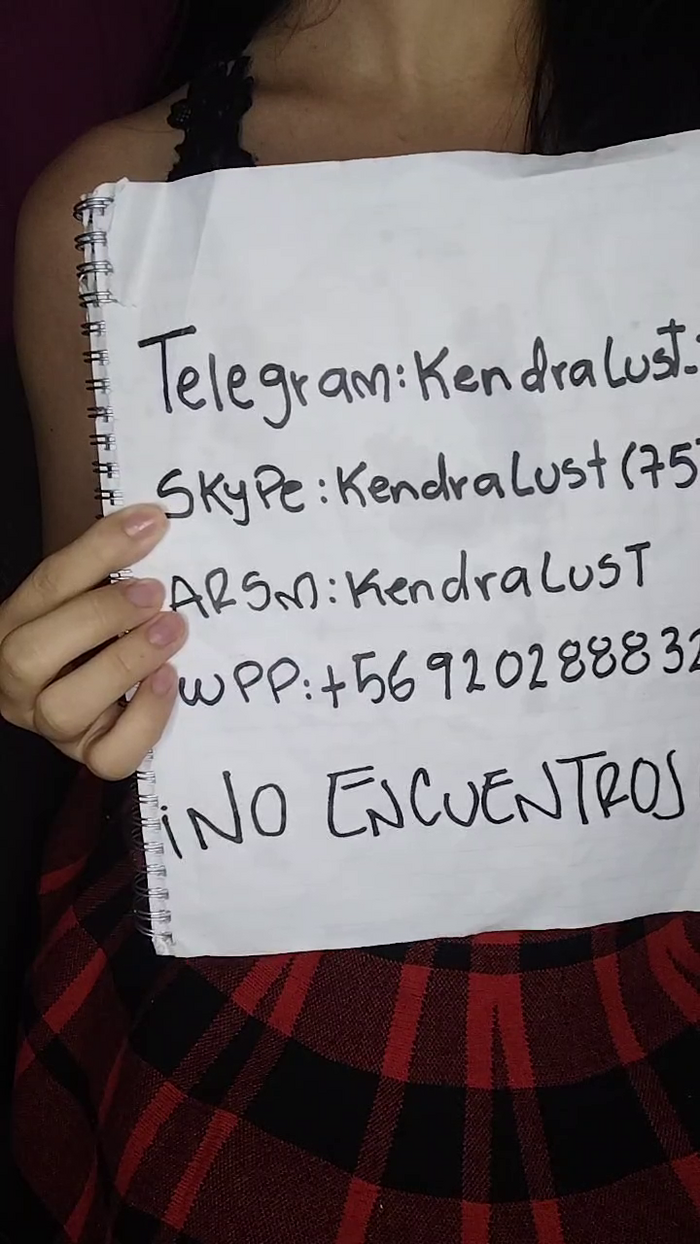 Telegram: KendraLust.
SKYPe: KendraLust (75
ARSM: KendraLusT
WPP: +56920288832
¡NO ENCUENTROS